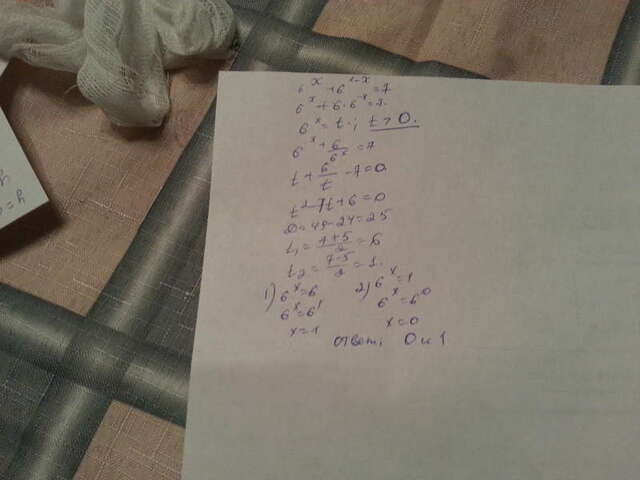 6^x + 6^{1-x} = 7
6^x + 6 · 6^{-x} = 7.
6^x = t ; t > 0.
6^x + 6/6^x = 7
t + 6/t - 7 = 0
t² - 7t + 6 = 0
D = 49 - 24 = 25
t₁ = (7+5)/2 = 6
t₂ = (7-5)/2 = 1.
1) 6^x = 6 2) 6^x = 1
6^x = 6^1 6^x = 6^0
x = 1 x = 0
ответ: 0 и 1